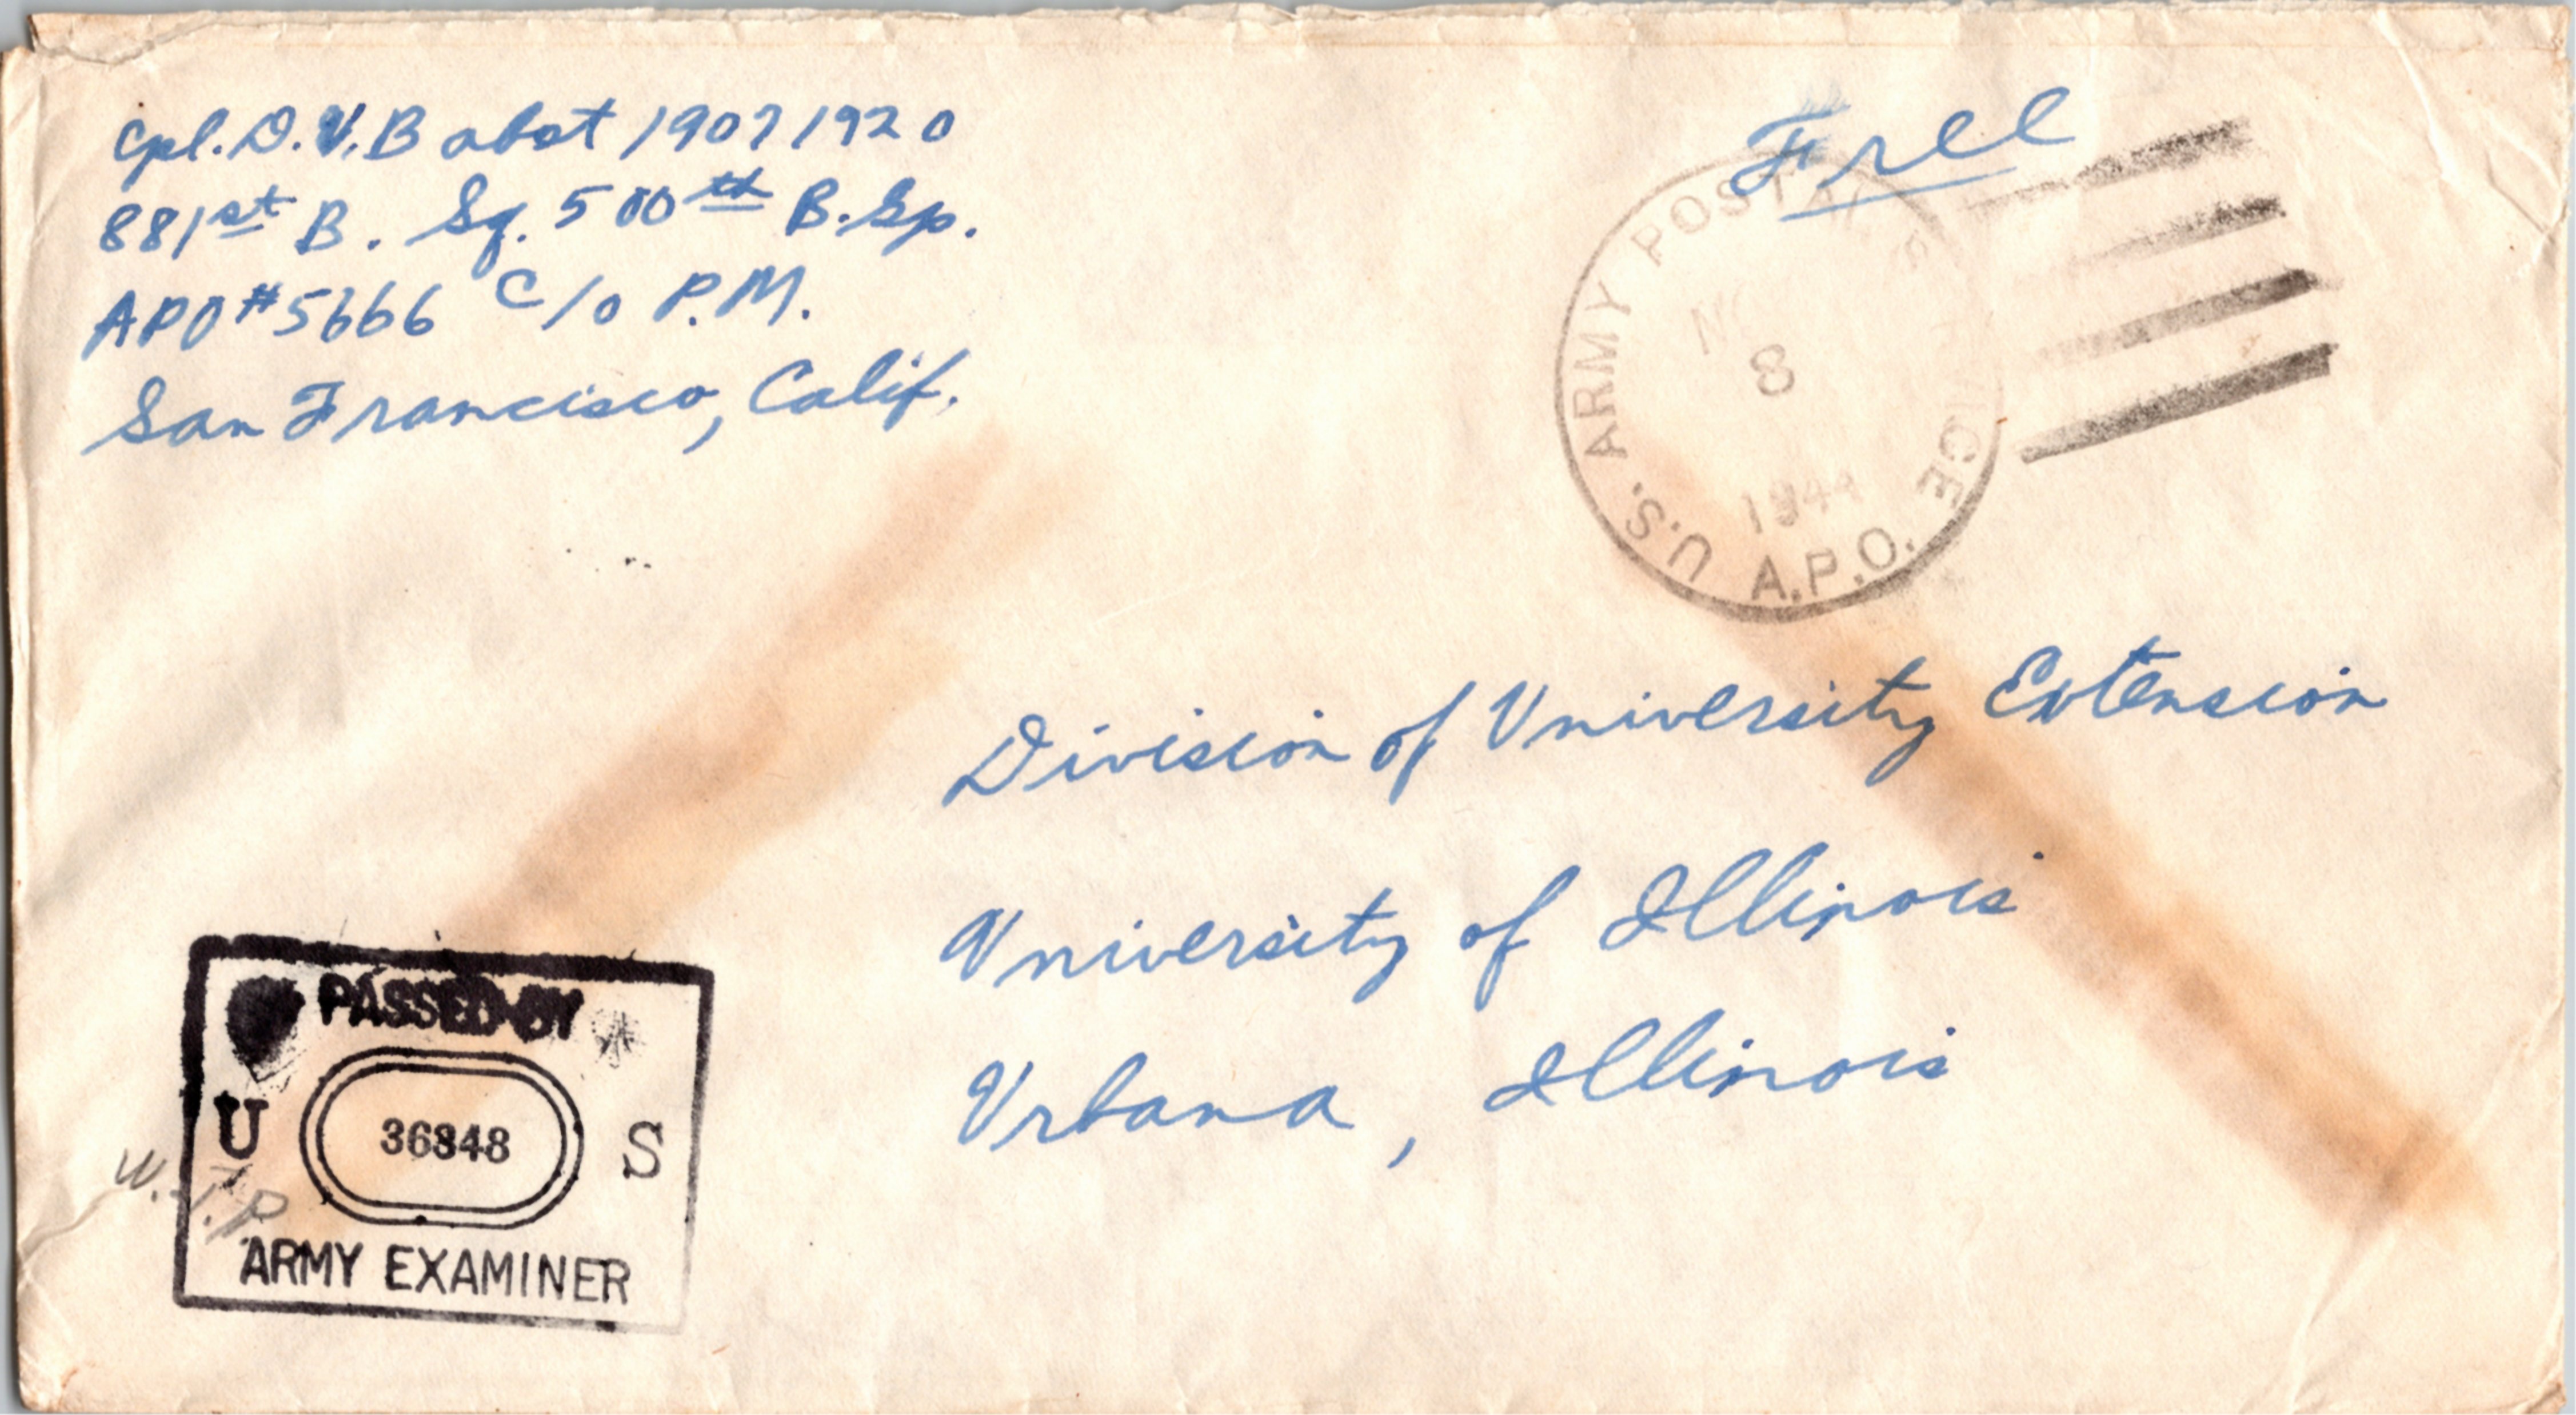 Cpl. D.V. Babat 19071920
881st B. Sq. 500th B. Gp.
APO #5666 C/o P.M.
San Francisco, Calif.
Free
U.S. ARMY POSTAL SERVICE
8
1944
A.P.O.
Division of University Extension
University of Illinois
Urbana, Illinois
PASSED BY
U S
36848
ARMY EXAMINER
W.J.P